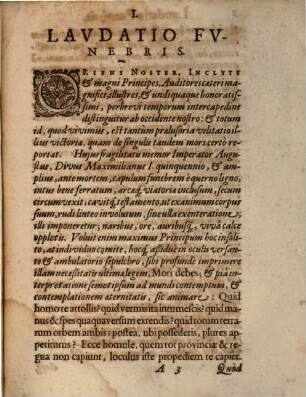 I.
LAVDATIO FV-
NEBRIS.
ORIENS NOSTER, INCLYTI
& magni Principes, Auditores cæteri ma-
gnifici, illustres, & undiquaque honoratis-
simi, perbrevi temporum intercapedine
distinguitur ab occidente nostro: & totum
id, quod vivimius, est tantùm prælusoria velitatio il-
lius victoria, quam de singulis tandem mors certo re-
portat. Hujus fragilitatis memor Imperator Augu-
stus, Divus Maximilianus I. quinquennio, & am-
plius, ante mortem, capulum funebrem è querno ligno,
intus bene ferratum, arcaq́; viatoria inclusum, secum
circumvexit, cavitq́; testamento, ut exanimum corpus
suum, rudi linteo involutum, sine ulla exenteratione,
illi imponeretur, naribus, ore, auribusq́;, vivâ calce
oppletis. Voluit enim maximus Principum hoc insoli-
to, at individuo comite, hocq́; assiduè in oculis versan-
te & ambulatorio sepulchro, sibi profundè imprimere
illam necessitatis ultimæ legem, Mori debes; & piâ in-
terpretatione semet ipsum ad mundi contemptum, &
contemplationem æternitatis, sic animare: Quid
homo te attollis? quid vermis ita intumescis? quid ma-
nus & spes quaquaversum extendis? quid totum terra-
rum orbem ambis? postea, ubi possederis, plures ap-
petiturus? Ecce homule, quem tot provinciæ & re-
gna non capiunt, loculus iste propediem te capiet.
A 3 Quod